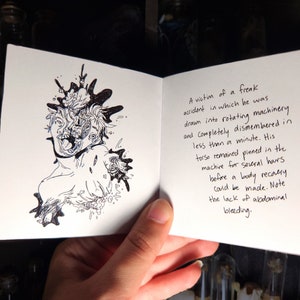 A victim of a freak
accident in which he was
drawn into rotating machinery
and completely dismembered in
less than a minute. His
torso remained pinned in the
machine for several hours
before a body recovery
could be made. Note
the lack of abdominal
bleeding.